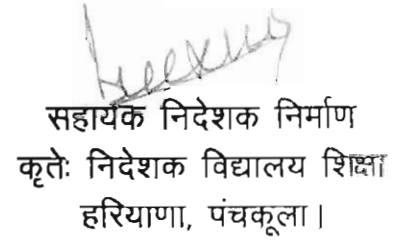 सहायक निदेशक निर्माण
कृतेः निदेशक विद्यालय शिक्षा
हरियाणा, पंचकूला।